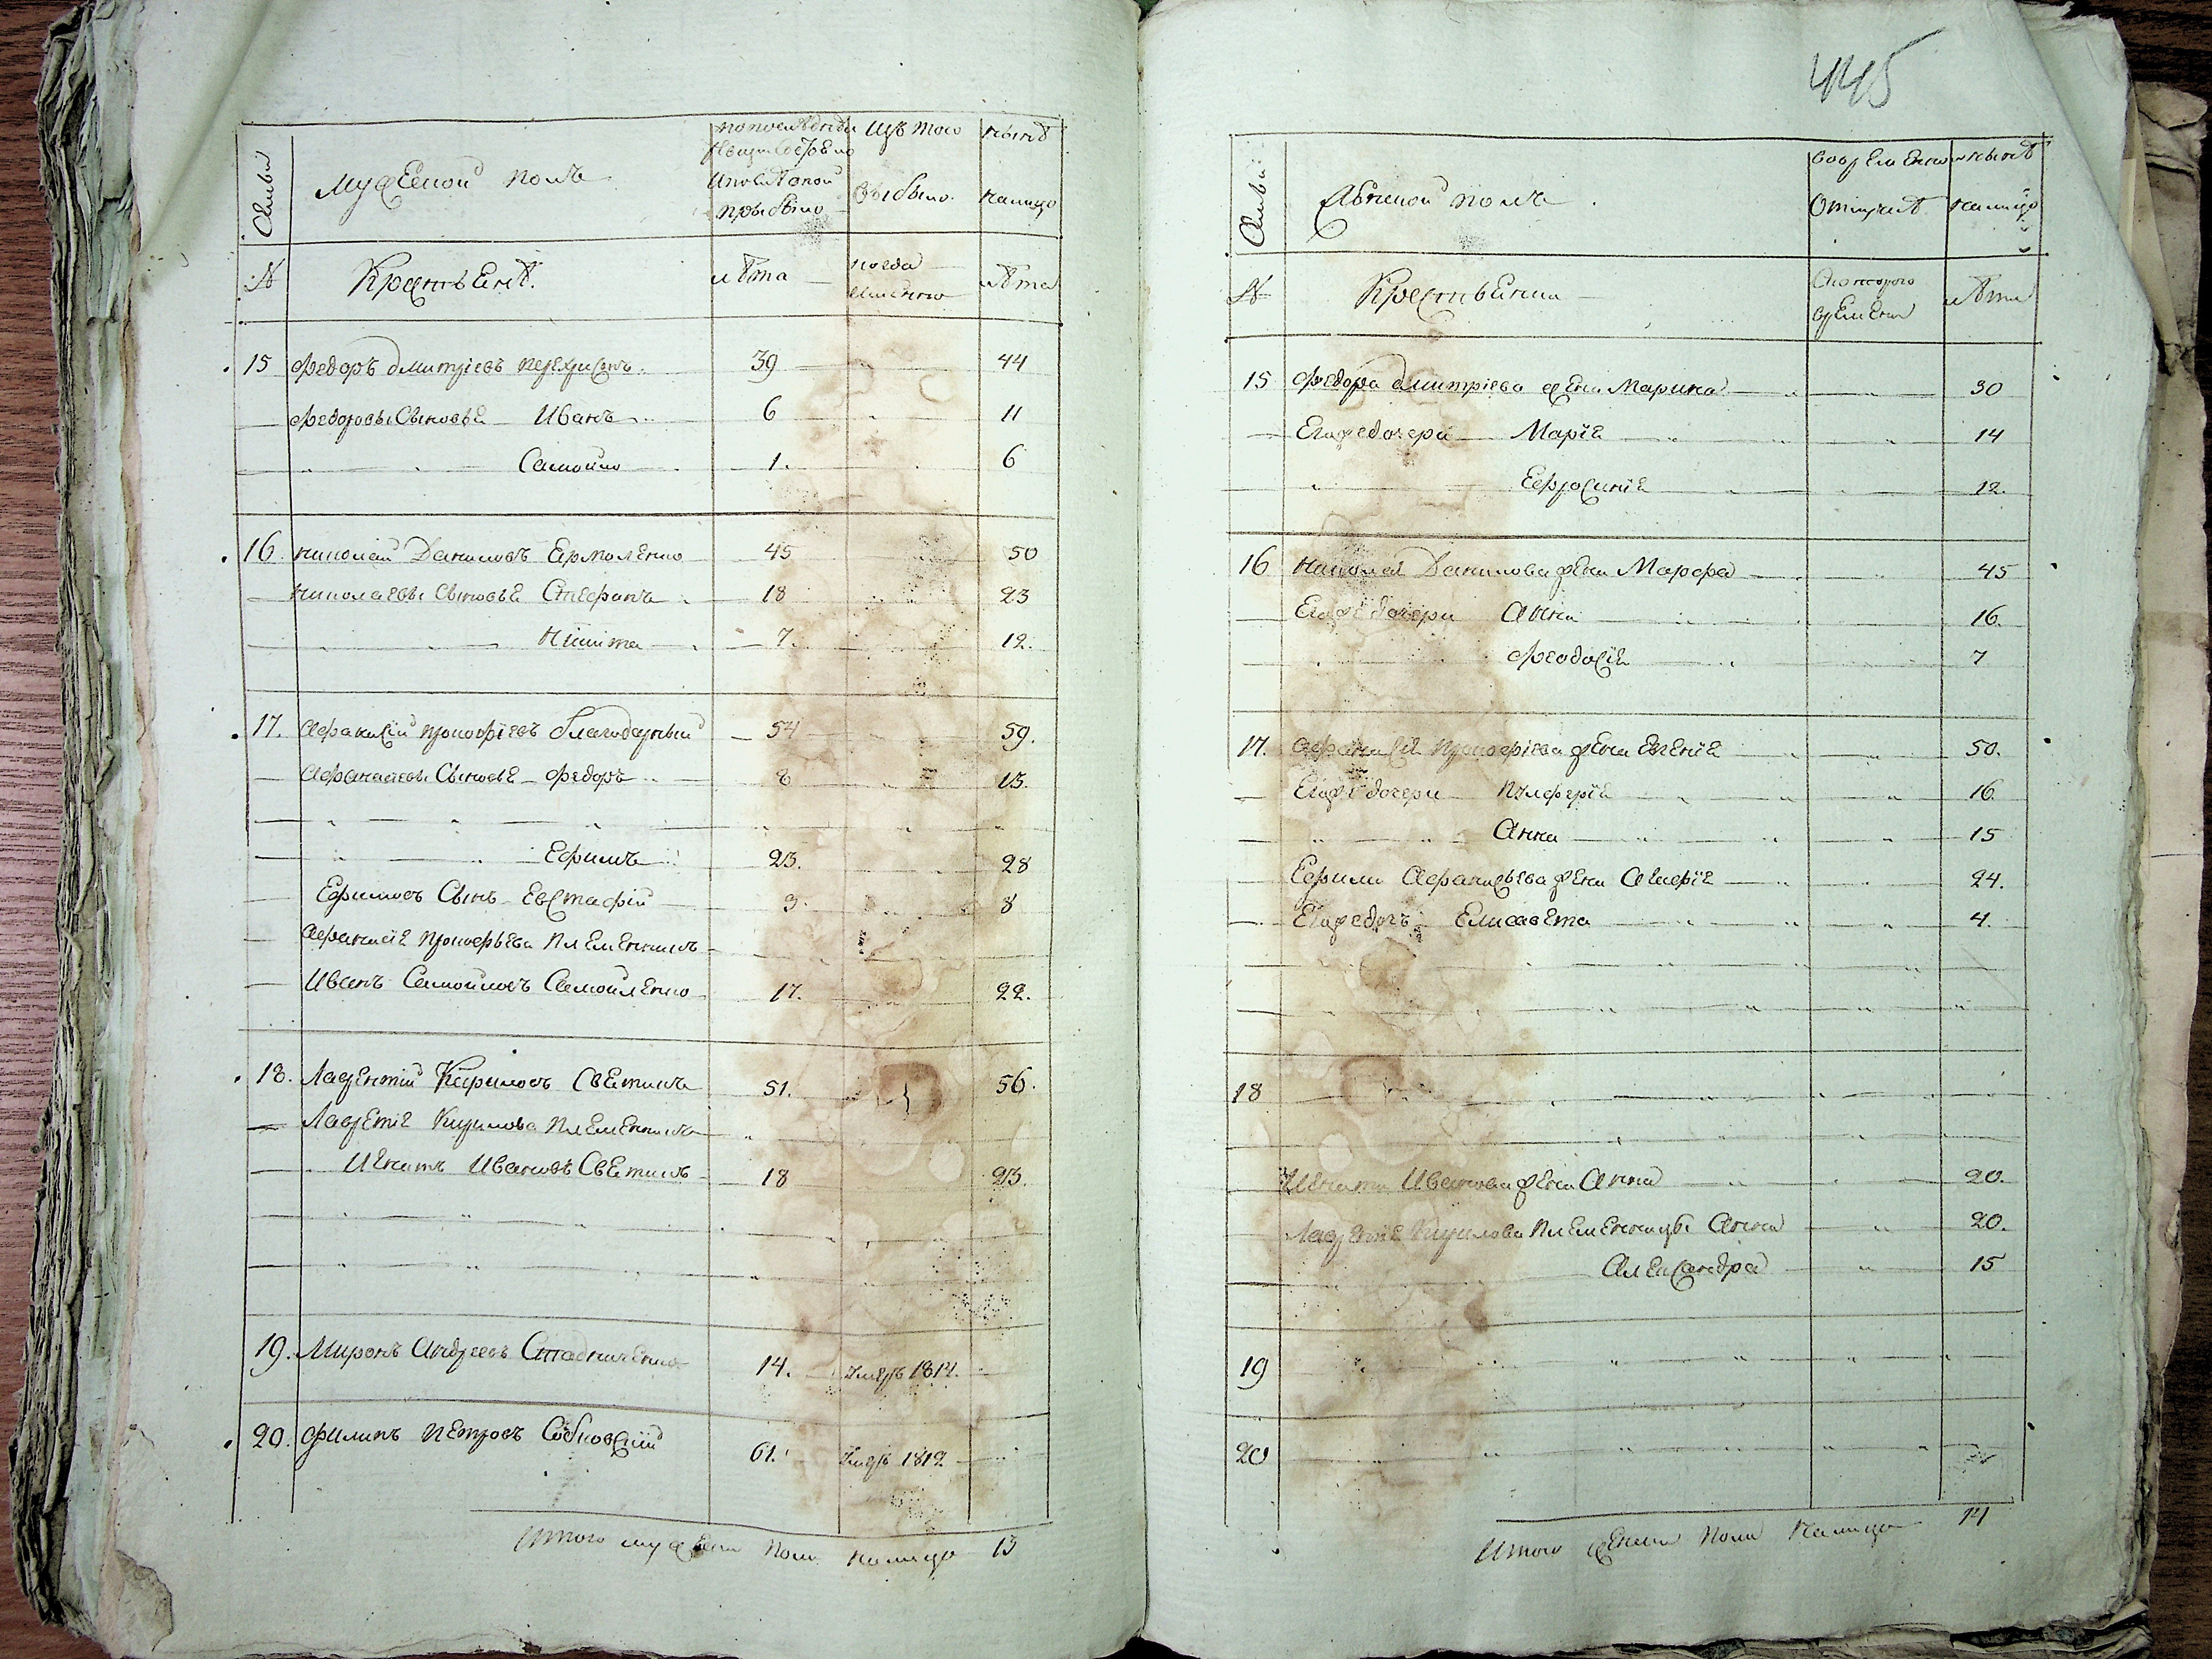 445
Семьи
Мужеской полъ
по последней
ревизии состояло
и после оной
прибыло
изъ того
выбыло
ныне
налицо
№
Крестьяне.
лѣта
когда
именно
лѣта
15 Федоръ Дмитріевъ 39 44
Федоровы Сыновья Иванъ 6 11
Самойло 1. 6
16. Николай Даниловъ Ермоленко 45 50
Николаевы Сыновья Стефанъ 18 23
Никита 7. 12.
17. Афанасій Прокофіевъ Благодарный 54 59.
Афанасіевы Сыновья Федоръ 8 13.
Ефимъ 23. 28
Ефимовъ Сынъ Евстафій 3 8
Афанасія Прокофьева племянникъ
Иванъ Самойловъ Самойленко 17. 22.
18. Лаврентій Кириловъ Светикъ 51. 56.
Лаврентія Кирилова племянникъ
Игнатъ Ивановъ Светикъ 18 23.
19. Миронъ Андреевъ Стадниченко 14. умеръ 1814.
20. Филипъ Петровъ Собковскій 61. умеръ 1812
Итого мужеска пола налицо 13
Семьи
Женской полъ
во временной
отлучке
ныне
налицо
№
Крестьянки
с которого
времени
лѣта
15 Федора Дмитріева жена Марина 30
Его же дочери Марія 14
Ефросинія 12.
16 Николая Данилова жена Марфа 45
Его же дочери Анна 16.
Феодосія 7
17. Афанасія Прокофіева жена Евгенія 50.
Его же дочери Пулхерія 16.
Анна 15
Ефима Афанасьева жена 24.
Его же дочь Елисавета 4.
18
Игната Иванова жена Анна 20.
Лаврентія Кирилова племянницы Анна 20.
Александра 15
19
20
Итого женска пола налицо 14